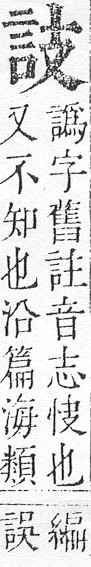 譌字舊註音志也
又不知也沿篇海類
編
誤